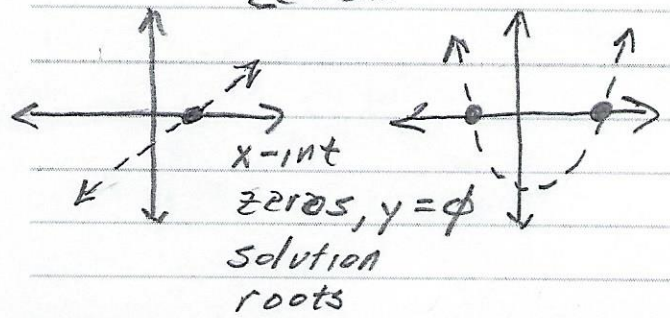 x-int
zeros, y = ϕ
solution
roots